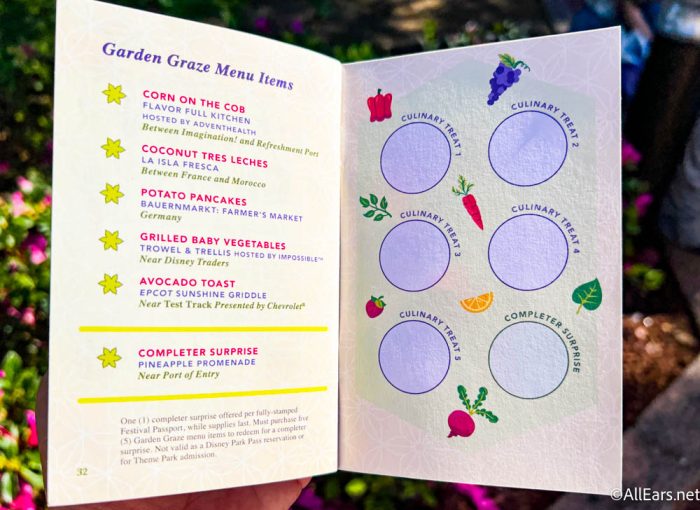 Garden Graze Menu Items
CORN ON THE COB
FLAVOR FULL KITCHEN
HOSTED BY ADVENTHEALTH
Between Imagination! and Refreshment Port
COCONUT TRES LECHES
LA ISLA FRESCA
Between France and Morocco
POTATO PANCAKES
BAUERNMARKT: FARMER'S MARKET
Germany
GRILLED BABY VEGETABLES
TROWEL & TRELLIS HOSTED BY IMPOSSIBLE™
Near Disney Traders
AVOCADO TOAST
EPCOT SUNSHINE GRIDDLE
Near Test Track Presented by Chevrolet®
COMPLETER SURPRISE
PINEAPPLE PROMENADE
Near Port of Entry
One (1) completer surprise offered per fully-stamped
Festival Passport, while supplies last. Must purchase five
(5) Garden Graze menu items to redeem for a completer
surprise. Not valid as a Disney Park Pass reservation or
for Theme Park admission.
32
CULINARY TREAT 1
CULINARY TREAT 2
CULINARY TREAT 3
CULINARY TREAT 4
CULINARY TREAT 5
COMPLETER SURPRISE
©AllEars.net